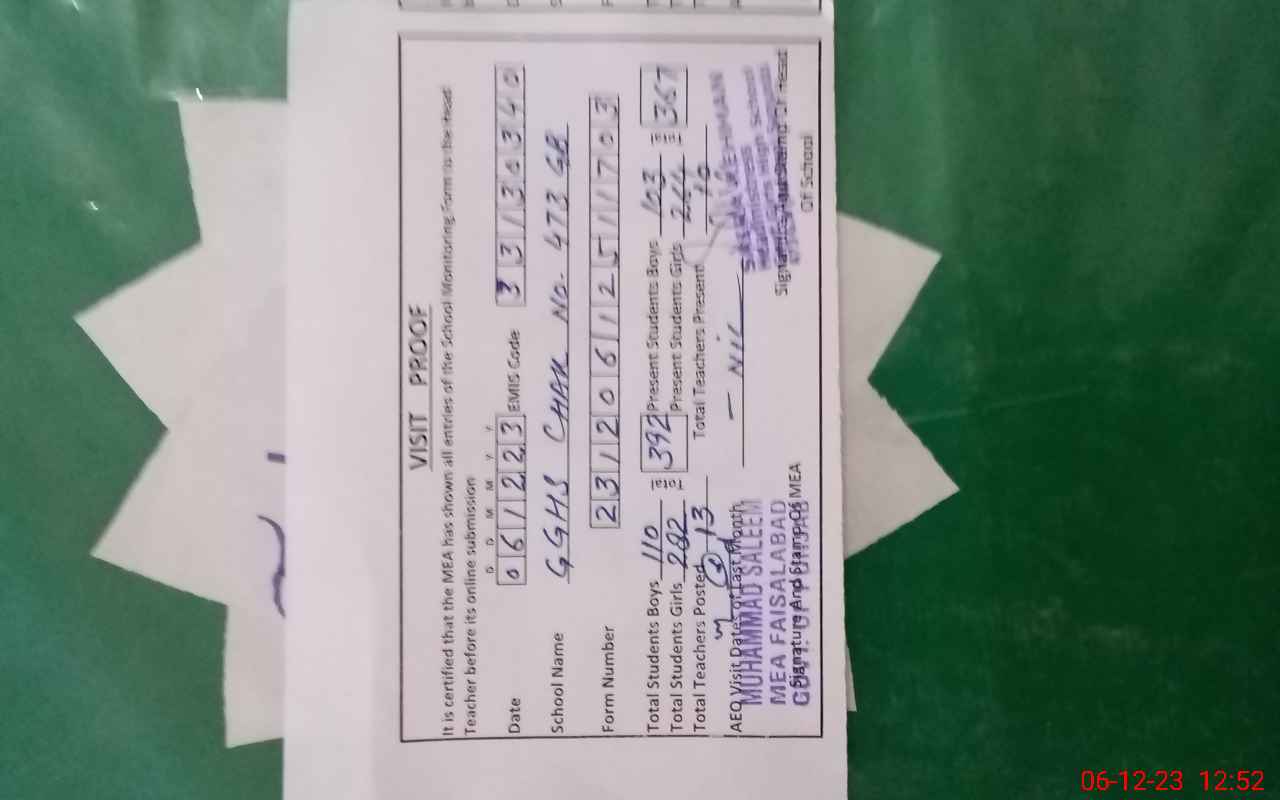 VISIT PROOF
It is certified that the MEA has shown all entries of the School Monitoring Form to the Head
Teacher before its online submission
D D M M Y Y
Date 061223 EMIS Code 33130340
School Name GGHS CHAK NO. 473 GB
Form Number 23120612511703
Total Students Boys 110 Total 392 Present Students Boys 103 Total 367
Total Students Girls 282 Present Students Girls 264
Total Teachers Posted 13 Total Teachers Present 10
AEO Visit Dates of Last Month — Nil
MUHAMMAD SALEEM
MEA FAISALABAD
GOVT. OF PUNJAB
Signature And Stamp Of MEA
Signature And Stamp Of Head
Of School
06-12-23 12:52